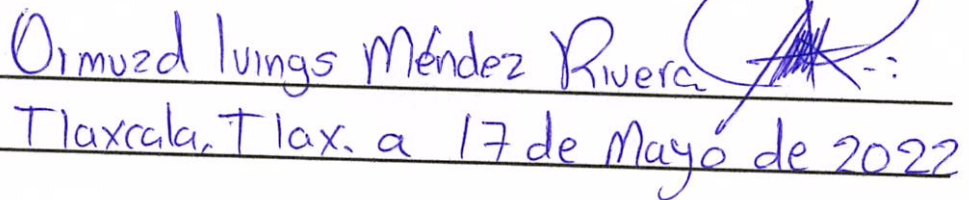 Ormuzd Ivings Méndez Rivera
Tlaxcala, Tlax. a 17 de Mayo de 2022